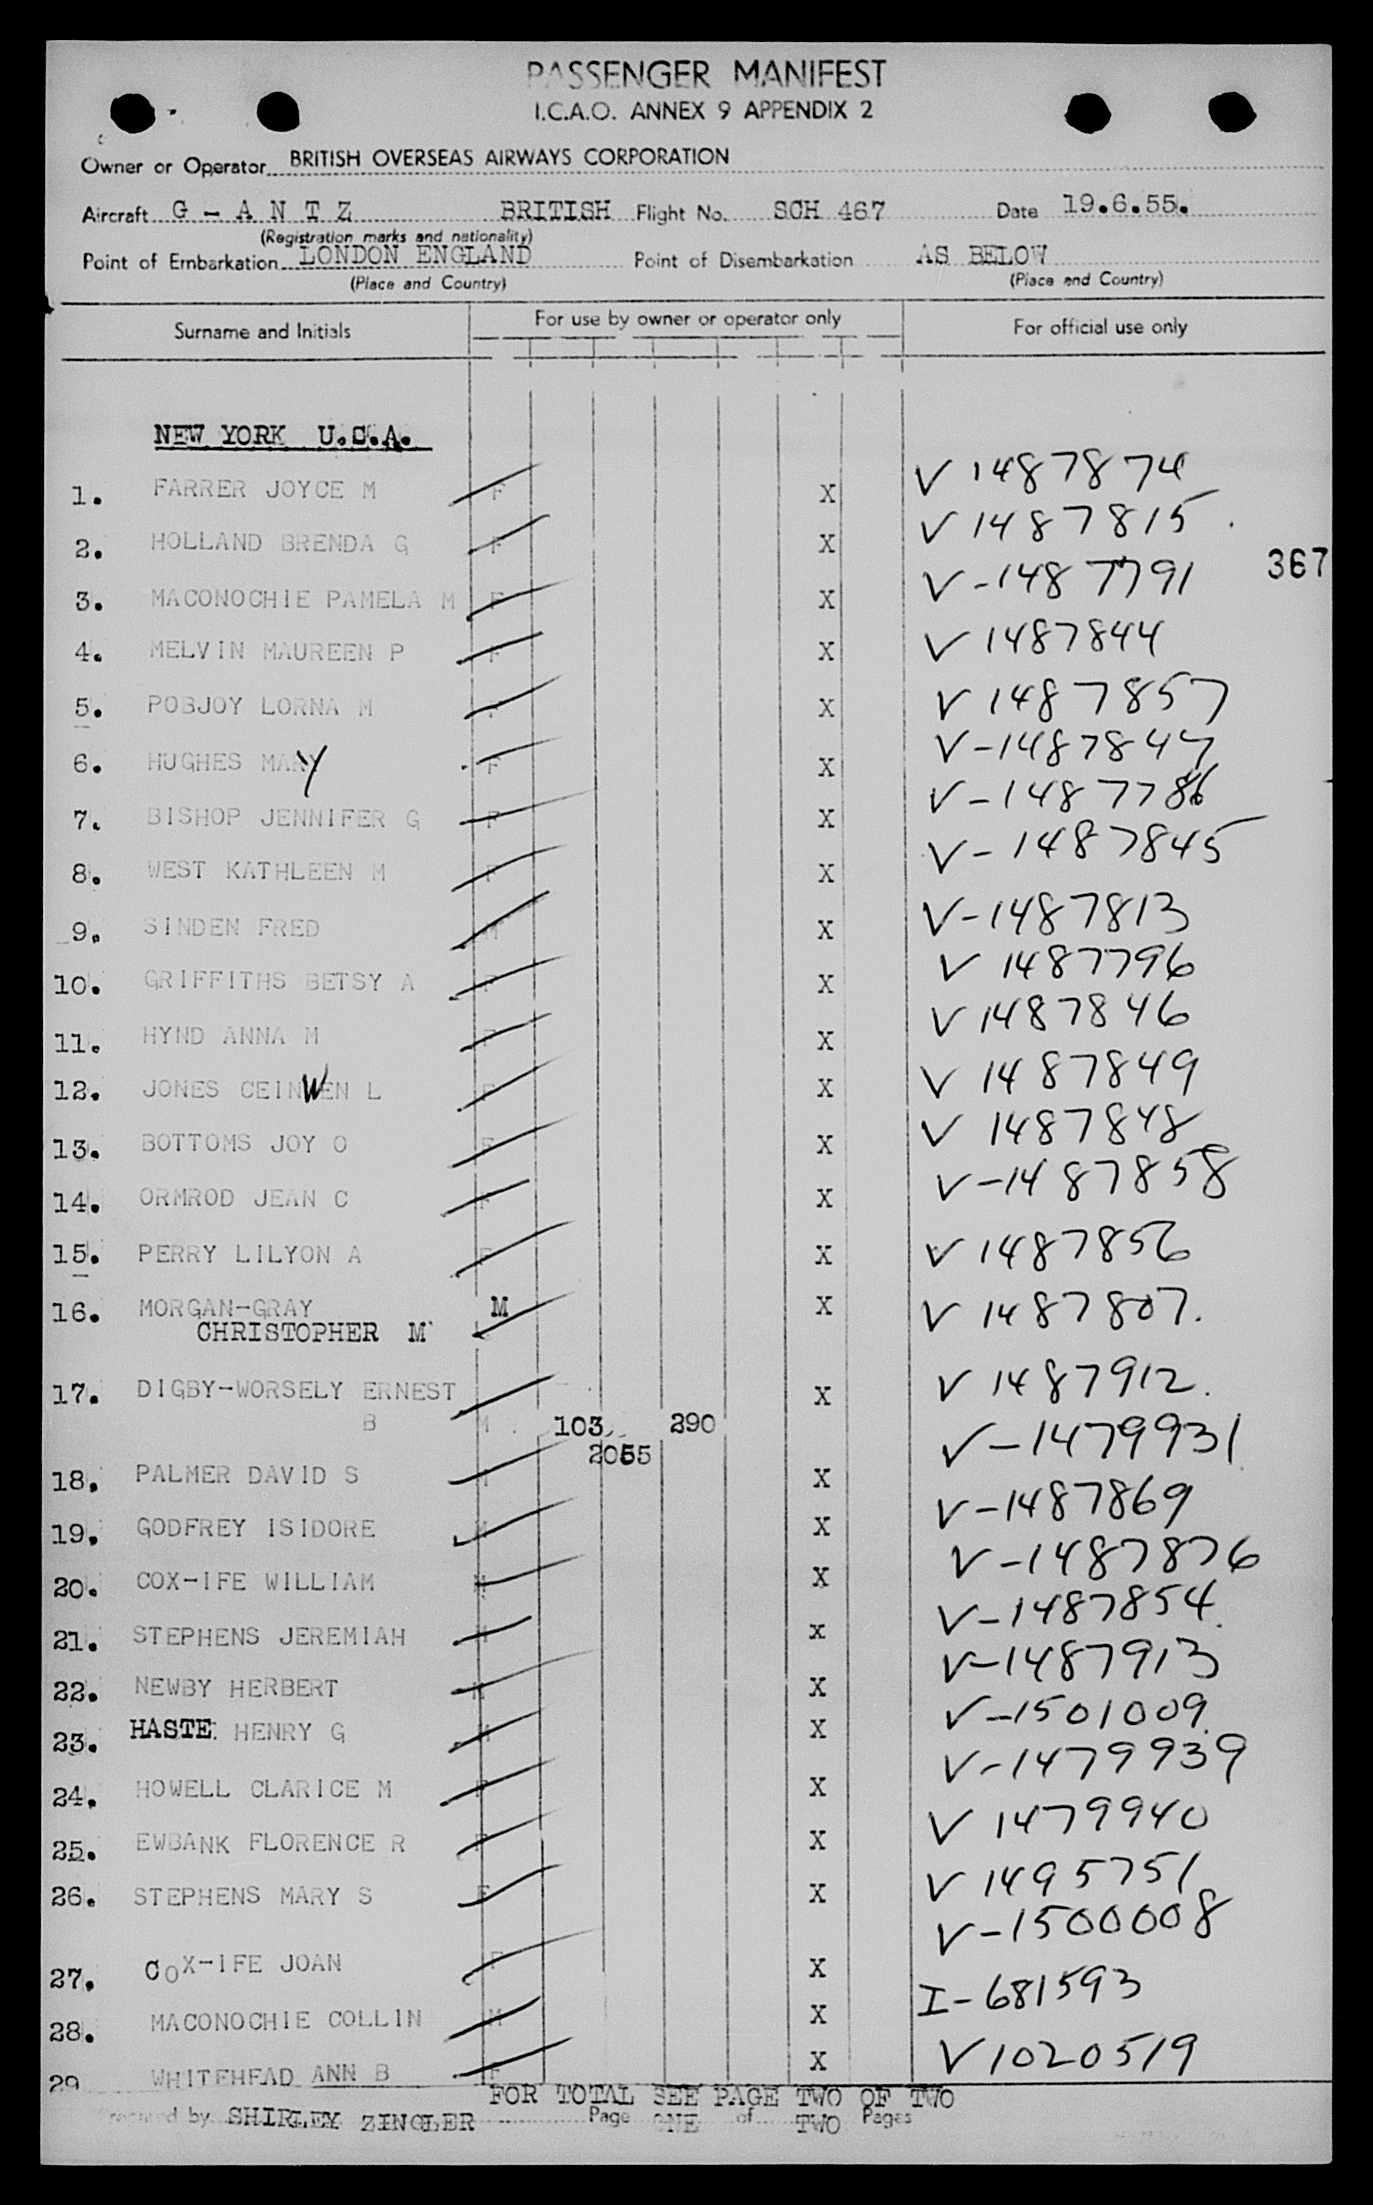 PASSENGER MANIFEST
I.C.A.O. ANNEX 9 APPENDIX 2
Owner or Operator BRITISH OVERSEAS AIRWAYS CORPORATION
Aircraft G - A N T Z BRITISH Flight No. SCH 467 Date 19.6.55.
(Registration marks and nationality)
Point of Embarkation LONDON ENGLAND Point of Disembarkation AS BELOW
(Place and Country) (Place and Country)
Surname and Initials For use by owner or operator only For official use only
NEW YORK U.S.A.
1. FARRER JOYCE M F X V 1487874
2. HOLLAND BRENDA G F X V 1487815
367
3. MACONOCHIE PAMELA M F X V-1487791
4. MELVIN MAUREEN P F X V 1487844
5. POBJOY LORNA M F X V 1487857
6. HUGHES MARY F X V-1487847
7. BISHOP JENNIFER G F X V-1487786
8. WEST KATHLEEN M F X V-1487845
9. SINDEN FRED M X V-1487813
10. GRIFFITHS BETSY A F X V 1487796
11. HYND ANNA M F X V 1487846
12. JONES CEINWEN L F X V 1487849
13. BOTTOMS JOY O F X V 1487848
14. ORMROD JEAN C F X V-1487858
15. PERRY LILYON A F X V 1487856
16. MORGAN-GRAY M X V 1487807.
CHRISTOPHER M
17. DIGBY-WORSELY ERNEST X V 1487912.
B M 103 290 V-1479931
2055
18. PALMER DAVID S X V-1487869
19. GODFREY ISIDORE M X V-1487876
20. COX-IFE WILLIAM M X V-1487854
21. STEPHENS JEREMIAH X V-1487913
22. NEWBY HERBERT M X V-1501009
23. HASTE HENRY G M X V-1479939
24. HOWELL CLARICE M F X V 1479940
25. EWBANK FLORENCE R F X V 1495751
26. STEPHENS MARY S F X V-1500008
27. COX-IFE JOAN F X I-681593
28. MACONOCHIE COLLIN M X V1020519
29 WHITEHEAD ANN B F X
FOR TOTAL SEE PAGE TWO OF TWO
Prepared by SHIRLEY ZINGLER Page ONE of TWO Pages